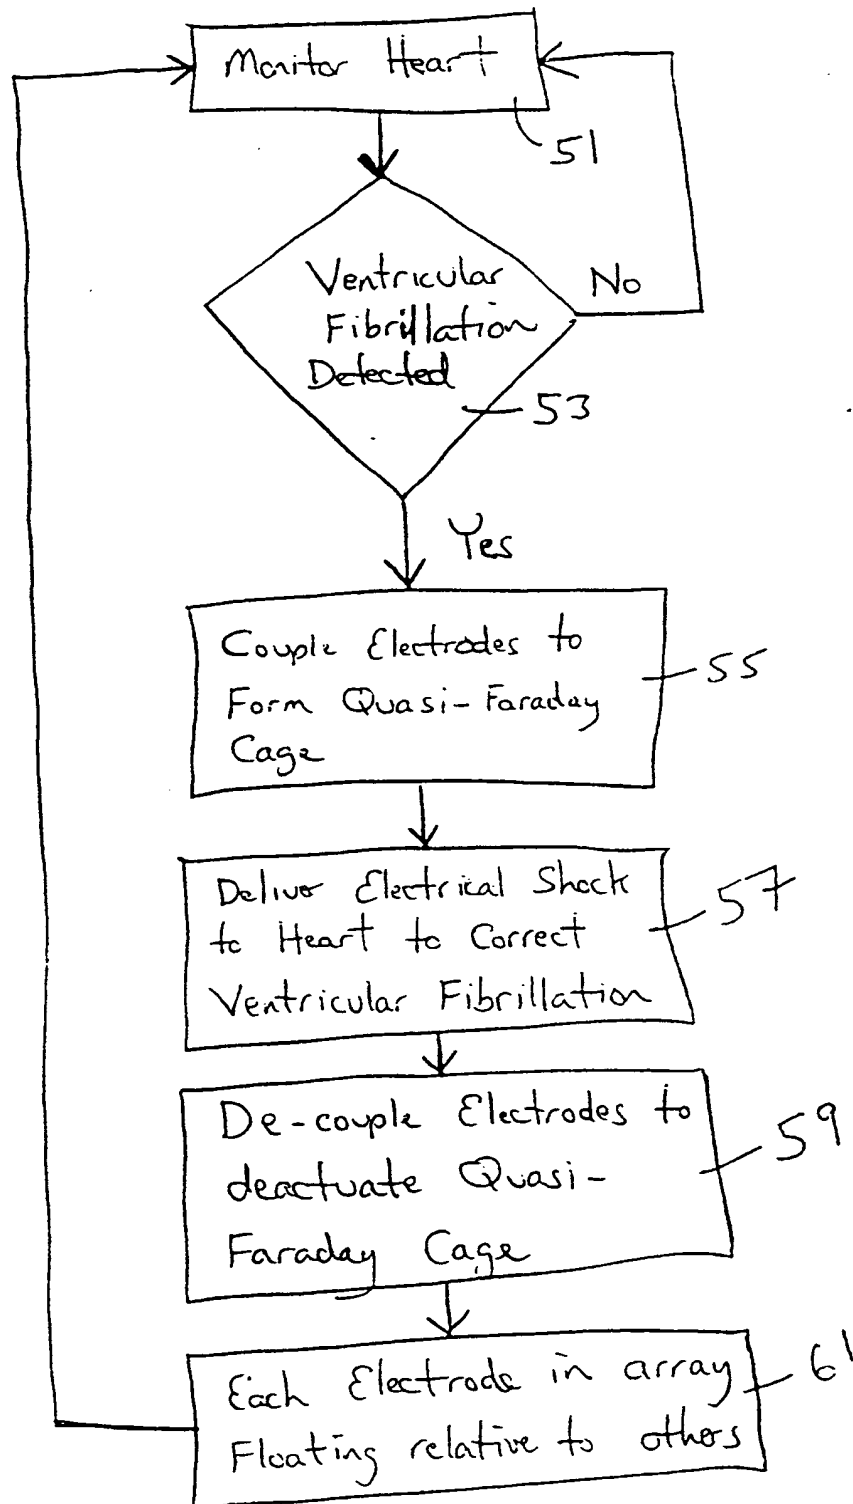 Monitor Heart
51
Ventricular
Fibrillation
Detected
No
53
Yes
Couple Electrodes to
Form Quasi-Faraday
Cage
55
Deliver Electrical Shock
to Heart to Correct
Ventricular Fibrillation
57
De-couple Electrodes to
deactuate Quasi-
Faraday Cage
59
Each Electrode in array
Floating relative to others
61